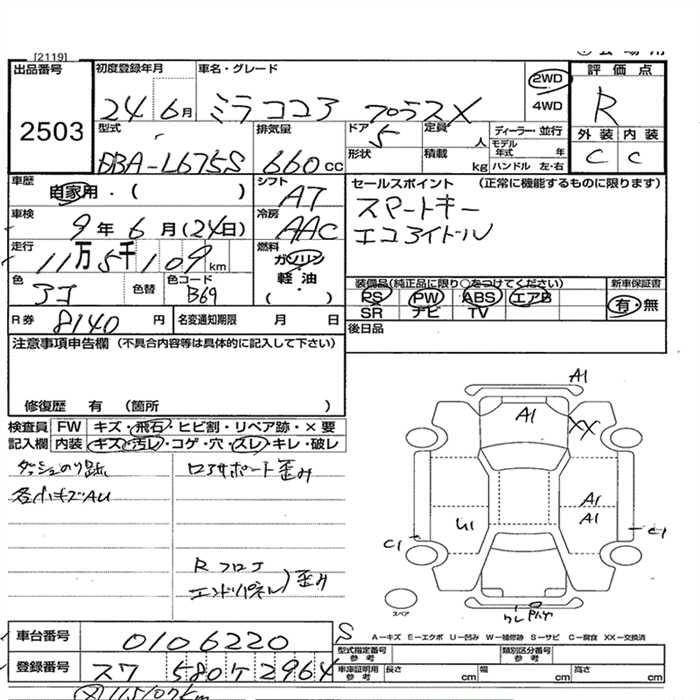 [2119]
出品番号 初度登録年月 車名・グレード 2WD 評価点
2503 24年 6月 ミラココア プラスX 4WD R
型式 排気量 ドア 定員 ディーラー・並行 外装 内装
DBA-L675S 660cc 5 人 モデル年式 年 C C
形状 積載 kg ハンドル 左・右
車歴 自家用・( ) シフト AT セールスポイント (正常に機能するものに限ります)
車検 9年 6月(24日) 冷房 AAC スマートキー
走行 11万5千109km 燃料 ガソリン・軽油 ( ) エコアイドル
色 色替 色コード B69 装備品(純正品に限り○をつけてください) 新車保証書
PS PW ABS エアB 有・無
SR ナビ TV
R券 8140円 名変通知期限 月 日 後日品
注意事項申告欄 (不具合内容等は具体的に記入して下さい)
修復歴 有 (箇所 )
検査員 FW キズ・飛石・ヒビ割・リペア跡・×要
記入欄 内装 キズ・汚レ・コゲ・穴・スレ・キレ・破レ
ダッシュのり跡 コアサポート歪み
各小キズAU
Rフロア
エンドパネル)歪み
A1
A1 XX
A1
U1 A1
C1 C1
スペア
A-キズ E-エクボ U-凹み W-補修跡 S-サビ C-腐食 XX-交換済
車台番号 0106220 型式指定番号 参考 類別区分番号 参考
登録番号 スワ 580 ケ 2964 車庫証明用 参考 長さ cm 幅 cm 高さ cm